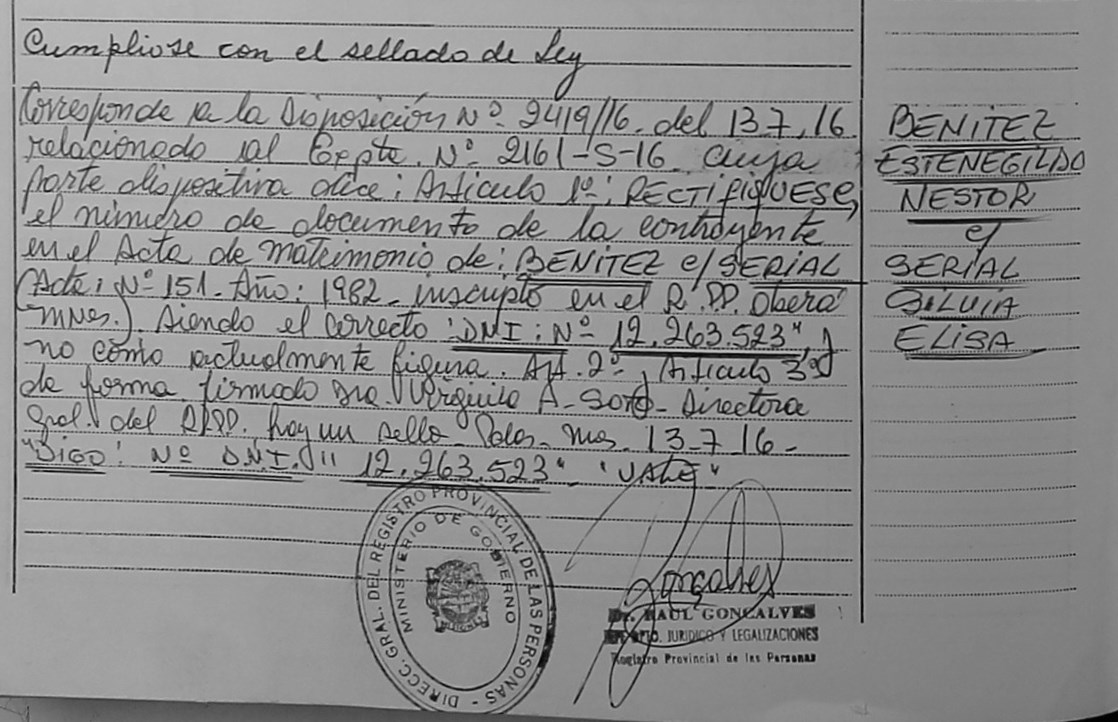 Cumpliose con el sellado de Ley
Corresponde a la Disposición Nº 2419/16. del 13.7.16.
relacionado al Expte. Nº 2161-S-16 cuya
parte dispositiva dice: Artículo 1º: RECTIFIQUESE,
el número de documento de la contrayente
en el Acta de matrimonio de: BENITEZ c/ SERIAL
(Acta: Nº 151. Año: 1982 - inscripto en el R.PP. Oberá
MNES.). siendo el correcto: DNI: Nº 12.263.523", y
no como actualmente figura. Art. 2º, Artículo 3º
de forma. firmado Dra. Virginia A. Soto - Directora
Gral. del RPP. hay un sello - Pdas. Mnes. 13-7-16-
"DIGO: Nº D.N.I. "12.263.523" "VALE"
BENITEZ
ESTENEGILDO
NESTOR
c/
SERIAL
SILVIA
ELISA
DIRECC. GRAL. DEL REGISTRO PROVINCIAL DE LAS PERSONAS
MINISTERIO DE GOBIERNO
Gonçalves
Dr. RAUL GONÇALVES
DPTO. JURIDICO Y LEGALIZACIONES
Registro Provincial de las Personas